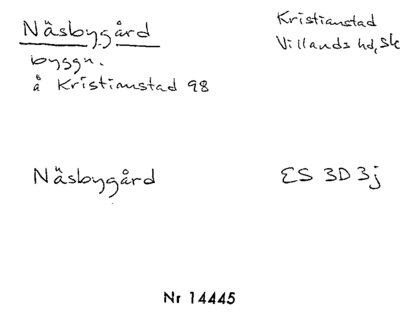 Näsbygård
Kristianstad
Villands hd, Sk
byggn.
å Kristianstad 98
Näsbygård
ES 3D3j
Nr 14445